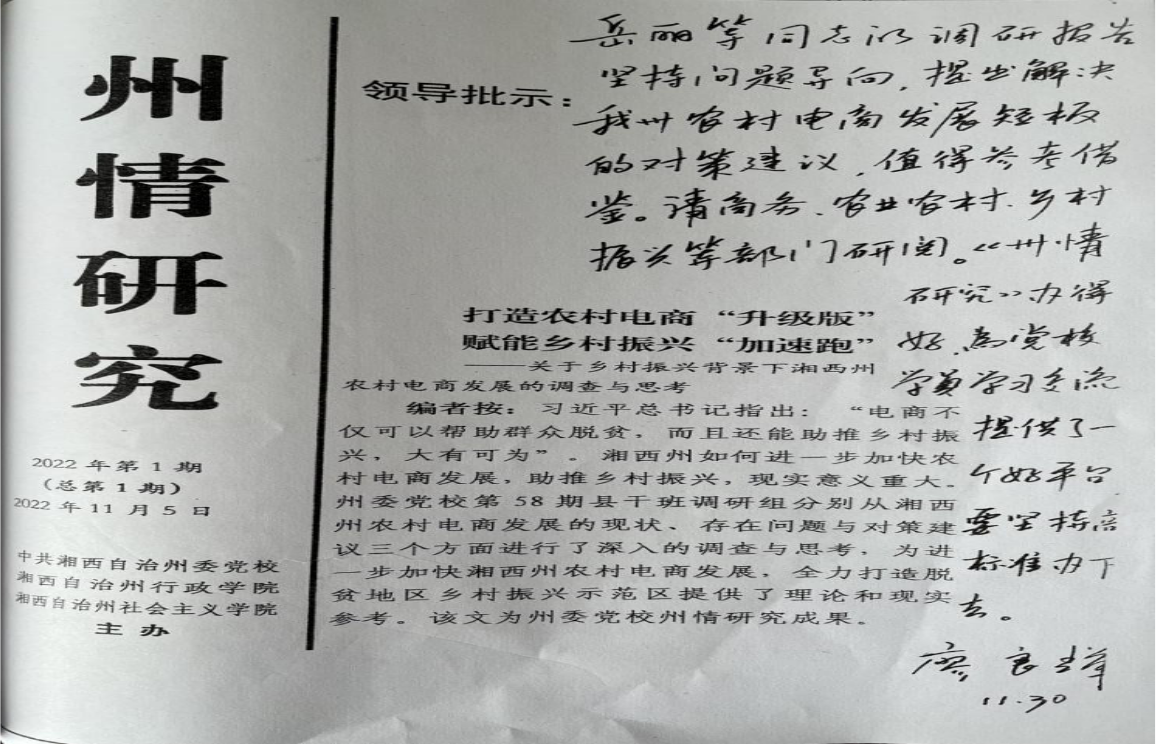 州情研究
2022年第1期
(总第1期)
2022年11月5日
中共湘西自治州委党校
湘西自治州行政学院
湘西自治州社会主义学院
主办
领导批示：
岳丽等同志的调研报告
坚持问题导向，提出解决
我州农村电商发展短板
的对策建议，值得参考借
鉴。请商务、农业农村、乡村
振兴等部门研阅。《州情
研究》办得
好，为党校
学员学习交流
提供了一
个好平台
要坚持高
标准办下
去。
廖良辉
11.30
打造农村电商“升级版”
赋能乡村振兴“加速跑”
——关于乡村振兴背景下湘西州
农村电商发展的调查与思考
编者按：习近平总书记指出：“电商不
仅可以帮助群众脱贫，而且还能助推乡村振
兴，大有可为”。湘西州如何进一步加快农
村电商发展，助推乡村振兴，现实意义重大。
州委党校第58期县干班调研组分别从湘西
州农村电商发展的现状、存在问题与对策建
议三个方面进行了深入的调查与思考，为进
一步加快湘西州农村电商发展，全力打造脱
贫地区乡村振兴示范区提供了理论和现实
参考。该文为州委党校州情研究成果。